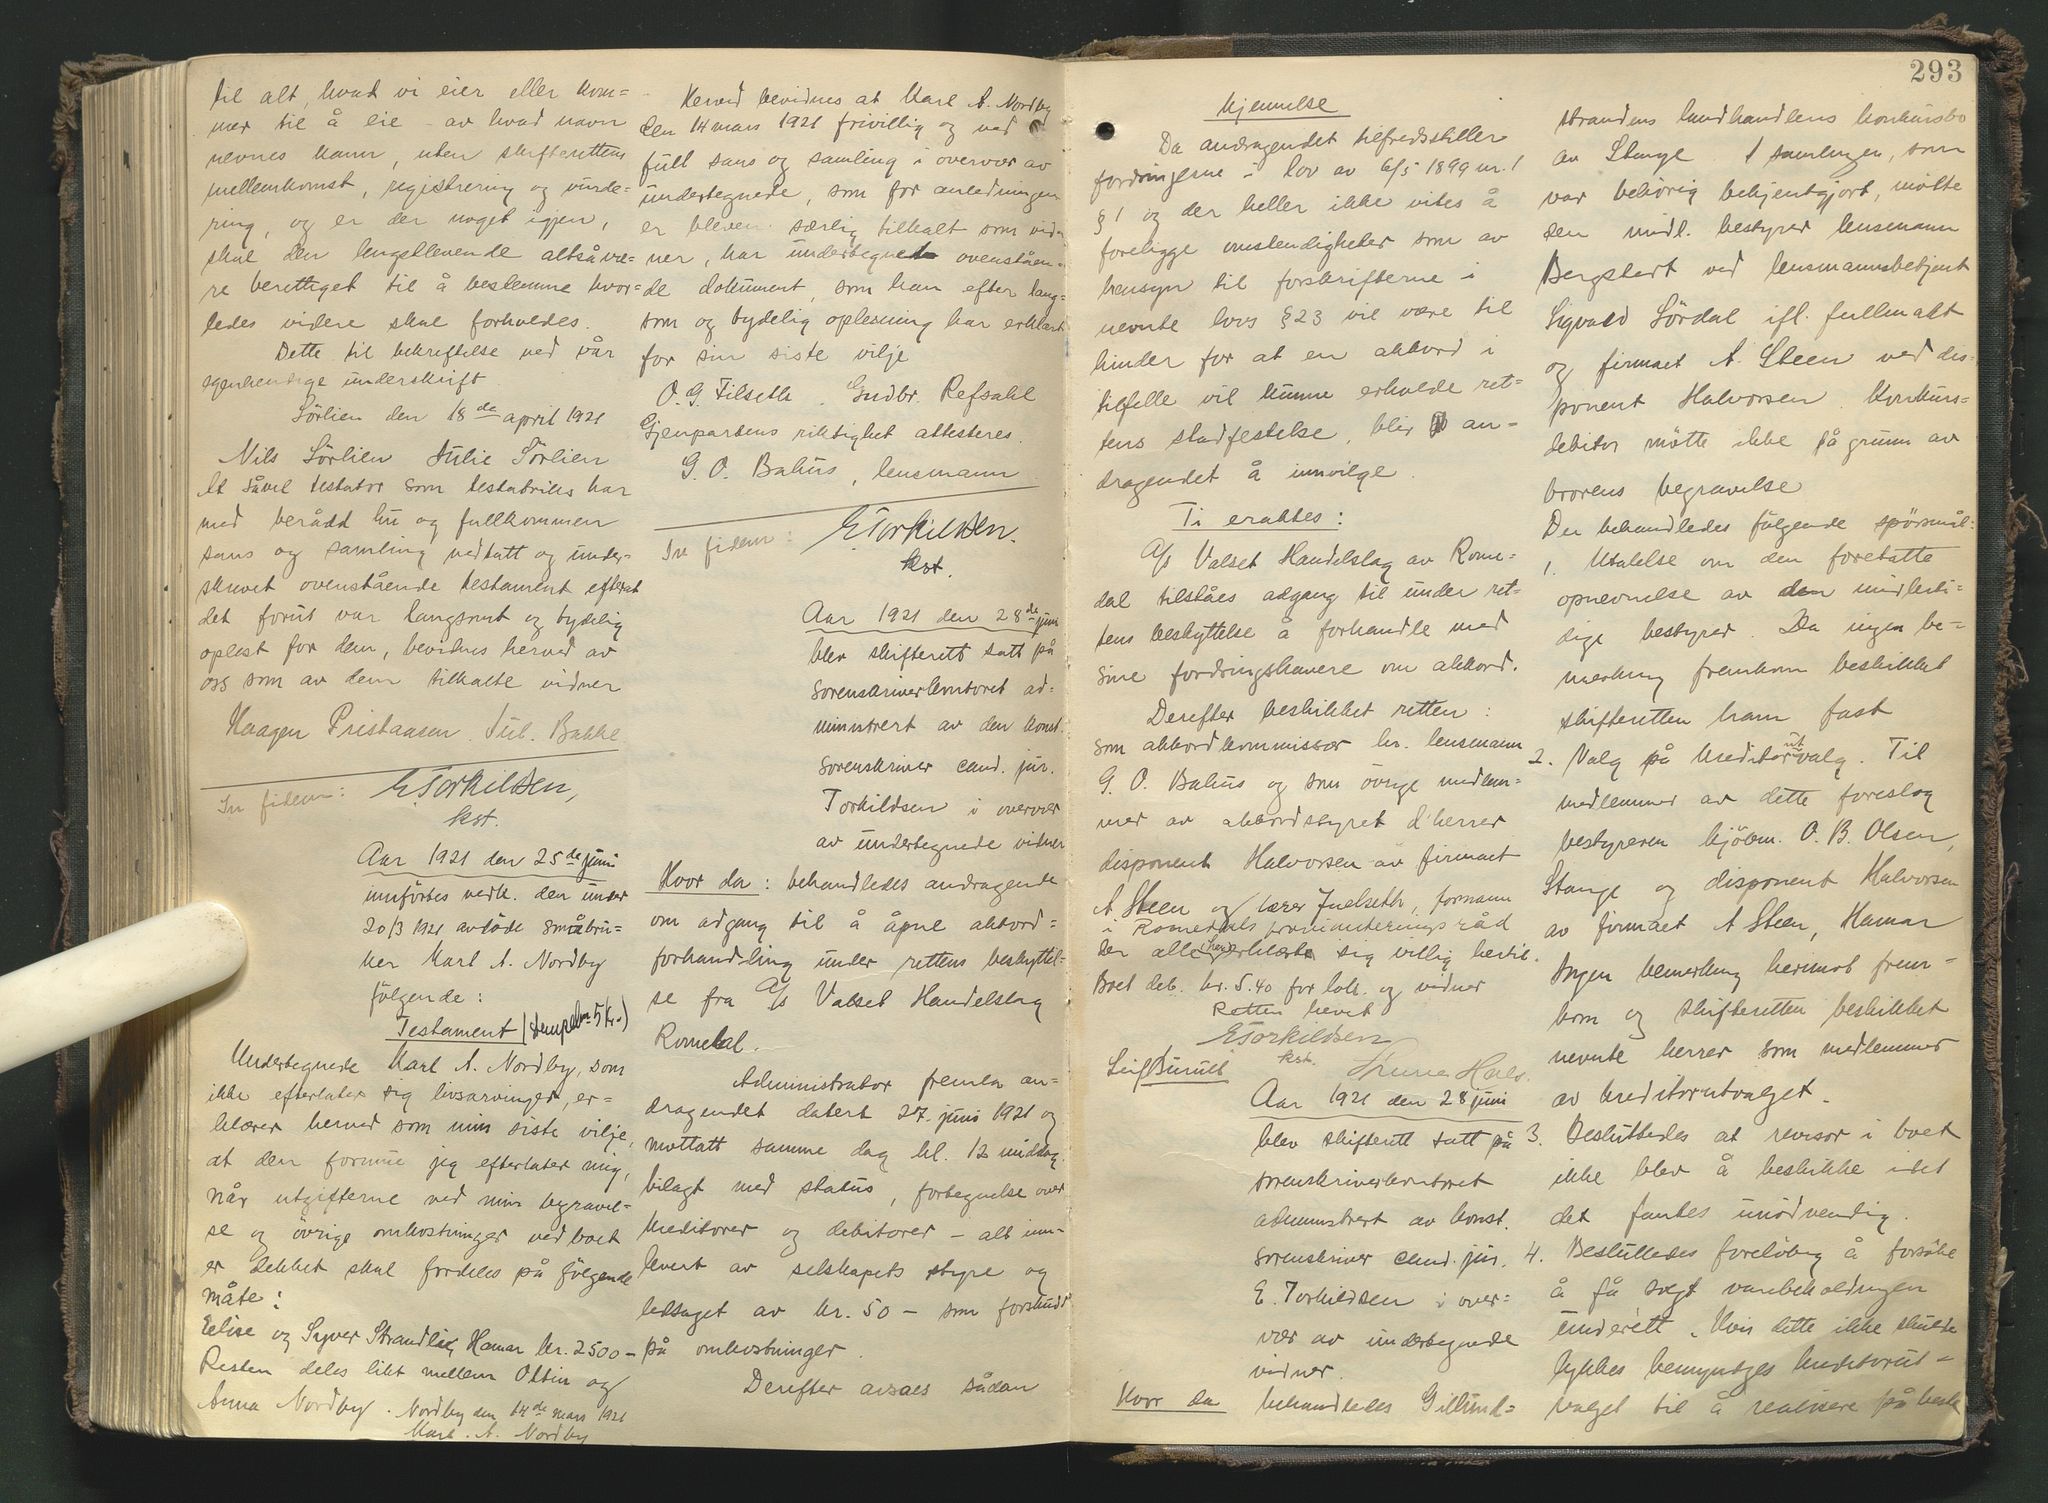 til alt, hvad vi eier eller kom=
mer til å eie – av hvad navn
nevnes kann, uten skifterettens
mellemkomst, registrering og vurde=
ring, og er der noget igjen,
skal den lengstlevende altså væ=
re berettiget til å bestemme hvor=
ledes videre skal forholdes.
Dette til bekreftelse ved vår
egenhendige underskrift.
Sörlien den 18de april 1921
Nils Sörlien Julie Sörlien
At såvel testator som testatriks har
med berådd hu og fullkommen
sans og samling vedtatt og under=
skrevet ovenstående testament efterat
det forut var langsomt og tydelig
oplest for dem, bevidnes herved av
oss som av dem tilkalte vidner
Haagen Pristaasen Jul. Bakke
In fidem: E Torkildsen,
kst.
Aar 1921 den 25de juni
innførtes vedk. den under
20/3 1921 avdöde småbru=
ker Karl A. Nordby
fölgende:
Testament (stempelm 5 kr.)
Undertegnede Karl A. Nordby, som
ikke efterlater sig livsarvinger, er=
klærer herved som min siste vilje,
at den formue jeg efterlater mig,
når utgifterne ved min begravel=
se og övrige omkostninger ved boet
er dekket skal fordeles på fölgende
måte:
Eelise og Syver Strandlie, Hamar kr. 2500 –
Resten deles likt mellem Ottin og
Anna Nordby. Nordby den 14de mars 1921
Karl A. Nordby
Herved bevidnes at Karl A. Nordby
den 14 mars 1921 frivillig og ved
full sans og samling i overvær av
undertegnede, som for anledningen
er bleven særlig tilkalt som vid=
ner, har undertegnet ovenståen=
de dokument, som han efter lang=
som og tydelig oplesning har erklært
for sin siste vilje
O. G. Tilseth. Gudbr. Refsahl
Gjenpartens riktighet attesteres.
G. O. Bahus, lensmann
In fidem: E Torkildsen.
kst.
Aar 1921 den 28de juni
blev skifterett satt på
sorenskriverkontoret ad=
ministrert av den konst.
sorenskriver cand. jur.
Torkildsen i overvær
av undertegnede vidner
Hvor da: behandledes andragende
om adgang til å åpne akkord=
forhandling under rettens beskyttel=
se fra A/s Valset Handelslag
Romedal.
Administrator fremla an=
dragendet datert 27. juni 1921 og
mottatt samme dag kl. 12 middag.
bilagt med status, fortegnelse over
kreditorer og debitorer – alt inn=
levert av selskapets styre og
ledsaget av kr. 50 – som forskudd
på omkostninger.
Derefter avsaes sådan
293
Kjennelse
Da andragendet tilfredsstiller
fordringerne i lov av 6/5 1899 nr. 1
§ 1 og der heller ikke vites å
foreligge omstendigheter som av
hensyn til forskrifterne i
nevnte lovs § 23 vil være til
hinder for at en akkord i
tilfelle vil kunne erholde ret=
tens stadfestelse, blir an=
dragendet å innvilge.
Ti eraktes:
A/s Valset Handelslag av Rome=
dal tilståes adgang til under ret=
tens beskyttelse å forhandle med
sine fordringshavere om akkord.
Derefter beskikket retten:
som akkordkommissær hr. lensmann
G. O. Bahus og som övrige medlem=
mer av akkordstyret d'herrer
disponent Halvorsen av firmaet
A. Steen og lærer Juelseth, formann
i Romedals provianteringsråd
der alle har erklært sig villig hertil.
Boet deb. kr. 5.40 for lok. og vidner
Retten hevet
E Torkildsen
kst.
Leif Buruld
Aar 1921 den 28 juni
blev skifterett satt på
sorenskriverkontoret
administrert av konst.
sorenskriver cand. jur.
E. Torkildsen i over=
vær av undertegnede
vidner.
Hvor da behandledes Gillund=
strandens landhandlers konkursbo
av Stange 1 samlingen, som
var behörig bekjentgjort, mötte
den midl. bestyrer lensmann
Bergstart ved lensmannsbetjent
Sigvald Sördal ifl. fullmakt
og firmaet A. Steen ved dis=
ponent Halvorsen. Konkurs=
debitor mötte ikke på grunn av
brorens begravelse
Der behandledes fölgende spörsmål:
1. Uttalelse om den foretatte
opnevnelse av den midlerti=
dige bestyrer. Da ingen be=
merkning fremkom beskikket
skifteretten ham fast
2. Valg på kreditorutvalg. Til
medlemmer av dette foreslog
bestyreren kjöbm. O. B. Olsen,
Stange og disponent Halvorsen
av firmaet A Steen, Hamar
Ingen bemerkning herimot frem=
kom og skifteretten beskikket
nevnte herrer som medlemmer
av kreditorutvalget.
3. Besluttedes at revisor i boet
ikke blev å beskikke idet
det fantes unödvendig.
4. Besluttedes foreløbig å forsöke
å få solgt varebeholdningen
underett. Hvis dette ikke skulde
lykkes bemyndiges kreditorut=
valget til å realisere på beste